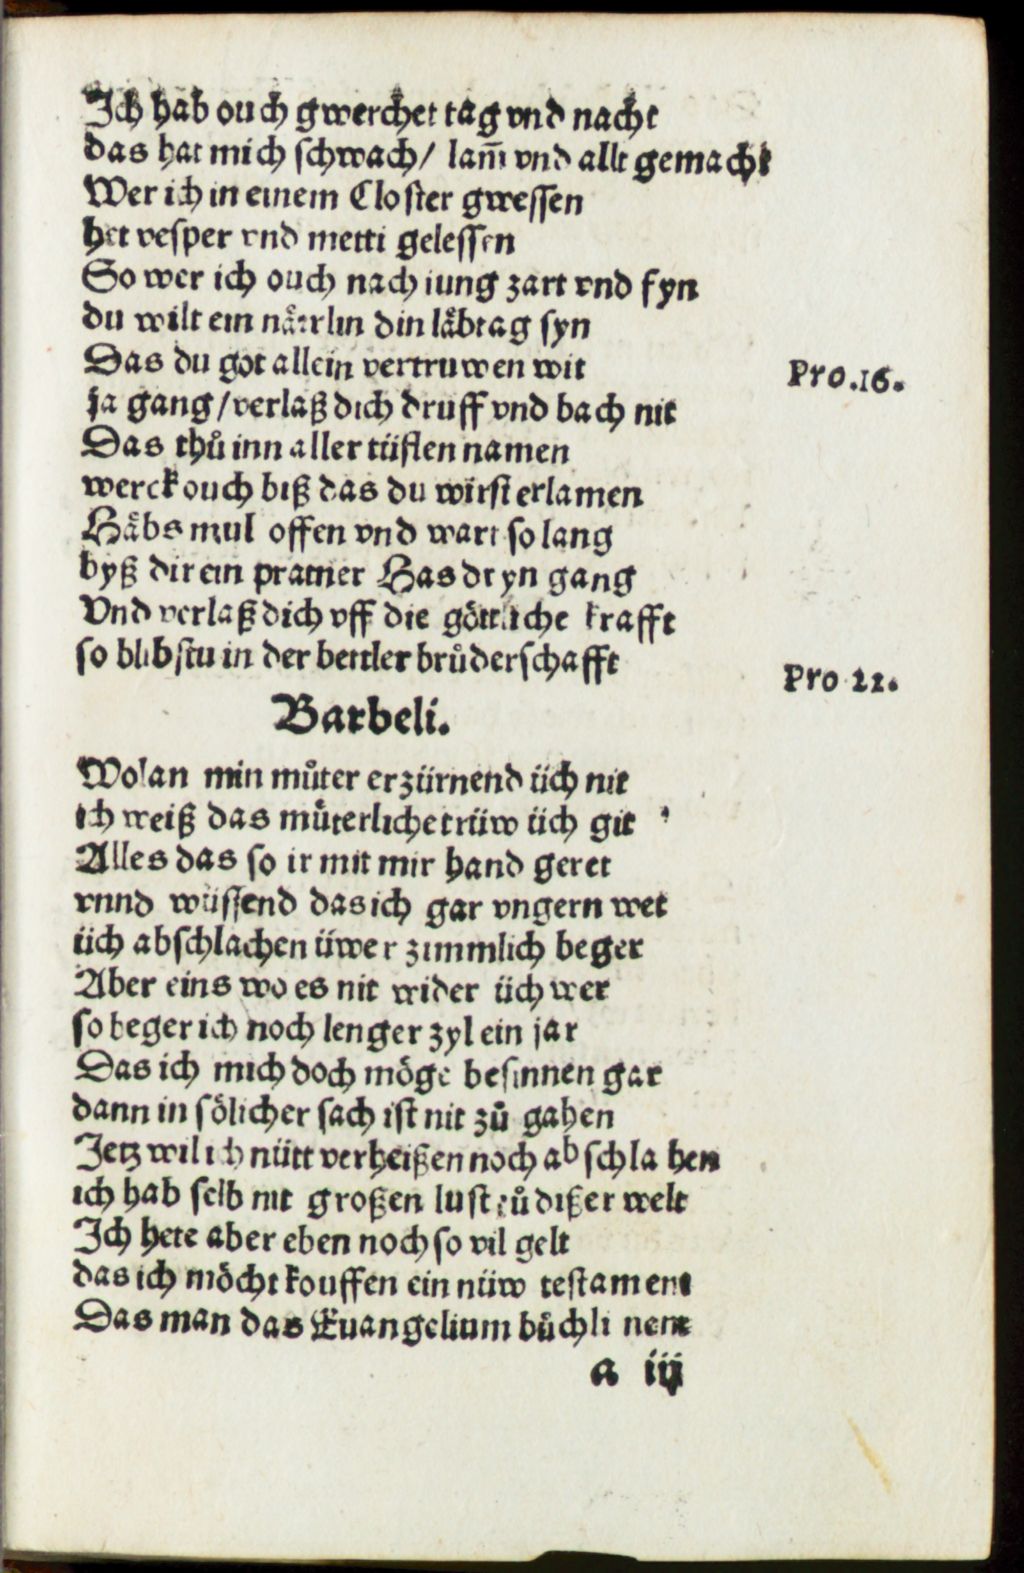 Ich hab ouch gwerchet tag vnd nacht
das hat mich schwach/ lam̄ vnd allt gemacht
Wer ich in einem Closter gwessen
het vesper vnd metti gelessen
So wer ich ouch nach iung zart vnd fyn
du wilt ein nåerrlin din låbtag syn
Das du got allein vertruwen wit
Pro.16.
ja gang/verlaß dich druff vnd bach nit
Das thů inn aller tüflen namen
werck ouch biß das du wirst erlamen
Håbs mul offen vnd wart so lang
byß dir ein pratner Has dryn gang
Vnd verlaß dich vff die göttliche krafft
so blibstu in der bettler brůderschafft
Pro 22.
Barbeli.
Wolan min můter erzürnend üch nit
ich weiß das můterliche trüw üch git
Alles das so ir mit mir hand geret
vnnd wüssend das ich gar vngern wet
üch abschlachen üwer zimmlich beger
Aber eins wo es nit wider üch wer
so beger ich noch lenger zyl ein jar
Das ich mich doch möge besinnen gar
dann in sölicher sach ist nit zů gahen
Jetz wil ich nütt verheißen noch abschlahen
ich hab selb nit großen lust zů dißer welt
Ich hete aber eben noch so vil gelt
das ich möcht kouffen ein nüw testament
Das man das Euangelium bůchli nent
a iij